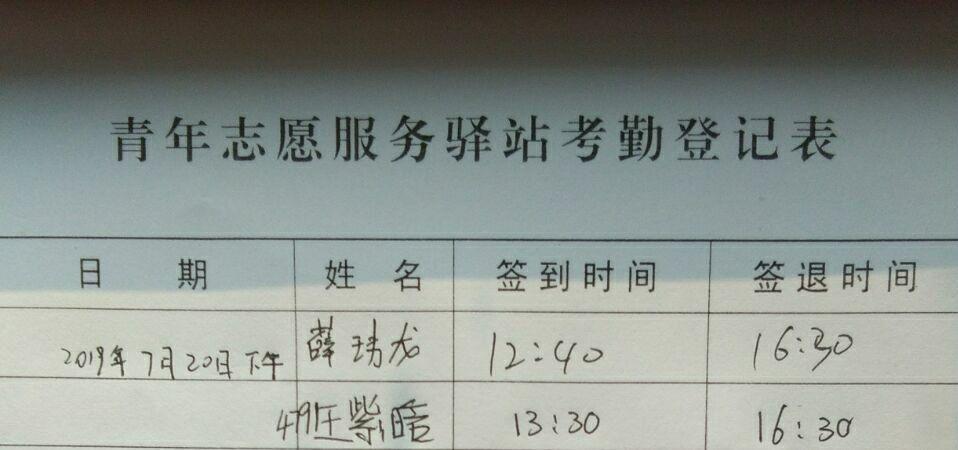 青年志愿服务驿站考勤登记表
日期 姓名 签到时间 签退时间
2019年7月20日下午 薛玮龙 12:40 16:30
紫晗 13:30 16:30